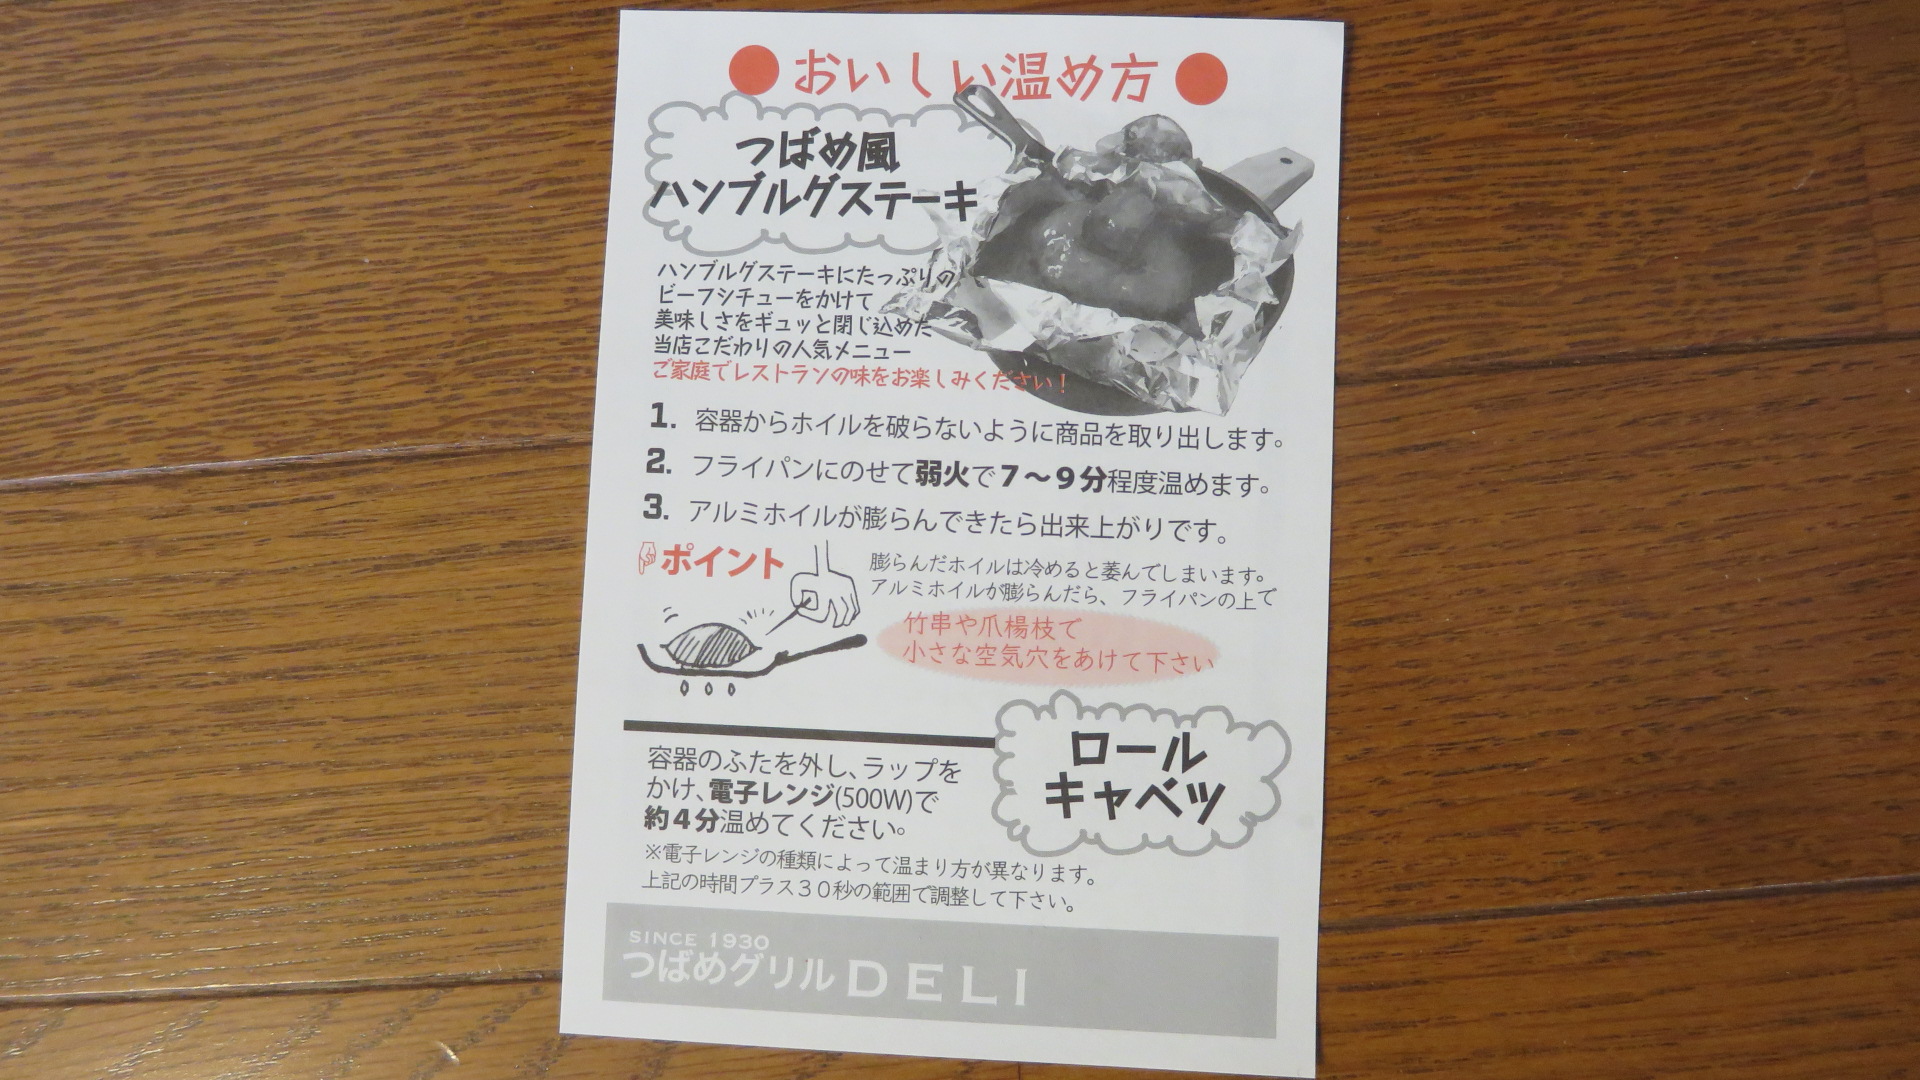 ●おいしい温め方●
つばめ風
ハンブルグステーキ
ハンブルグステーキにたっぷりの
ビーフシチューをかけて
美味しさをギュッと閉じ込めた
当店こだわりの人気メニュー
ご家庭でレストランの味をお楽しみください!
1. 容器からホイルを破らないように商品を取り出します。
2. フライパンにのせて弱火で7〜9分程度温めます。
3. アルミホイルが膨らんできたら出来上がりです。
ポイント
膨らんだホイルは冷めると萎んでしまいます。
アルミホイルが膨らんだら、フライパンの上で
竹串や爪楊枝で
小さな空気穴をあけて下さい
ロール
キャベツ
容器のふたを外し、ラップを
かけ、電子レンジ(500W)で
約4分温めてください。
※電子レンジの種類によって温まり方が異なります。
上記の時間プラス30秒の範囲で調整して下さい。
SINCE 1930
つばめグリルDELI